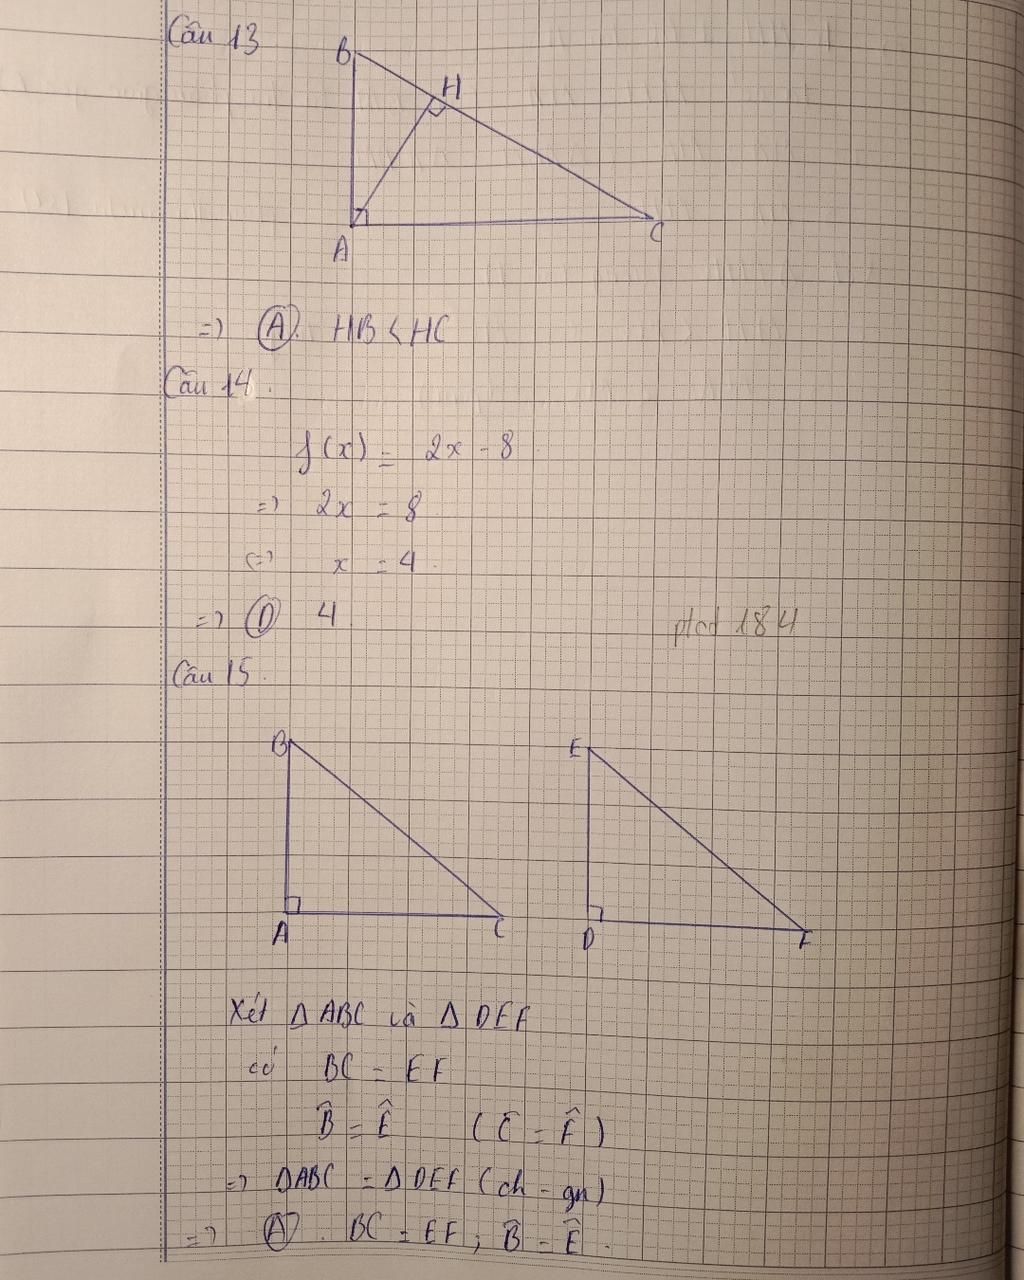 Câu 13
B
H
A
C
=> A. HB < HC
Câu 14.
f(x) = 2x - 8
=> 2x = 8
<=> x = 4.
=> D 4
ptad 184
Câu 15.
B
E
A
C
D
F
Xét Δ ABC và Δ DEF
có BC = EF
B̂ = Ê ( C̄ = F̂ )
=> ΔABC = Δ DEF (ch - gn)
=> A. BC = EF ; B̄ = Ê.